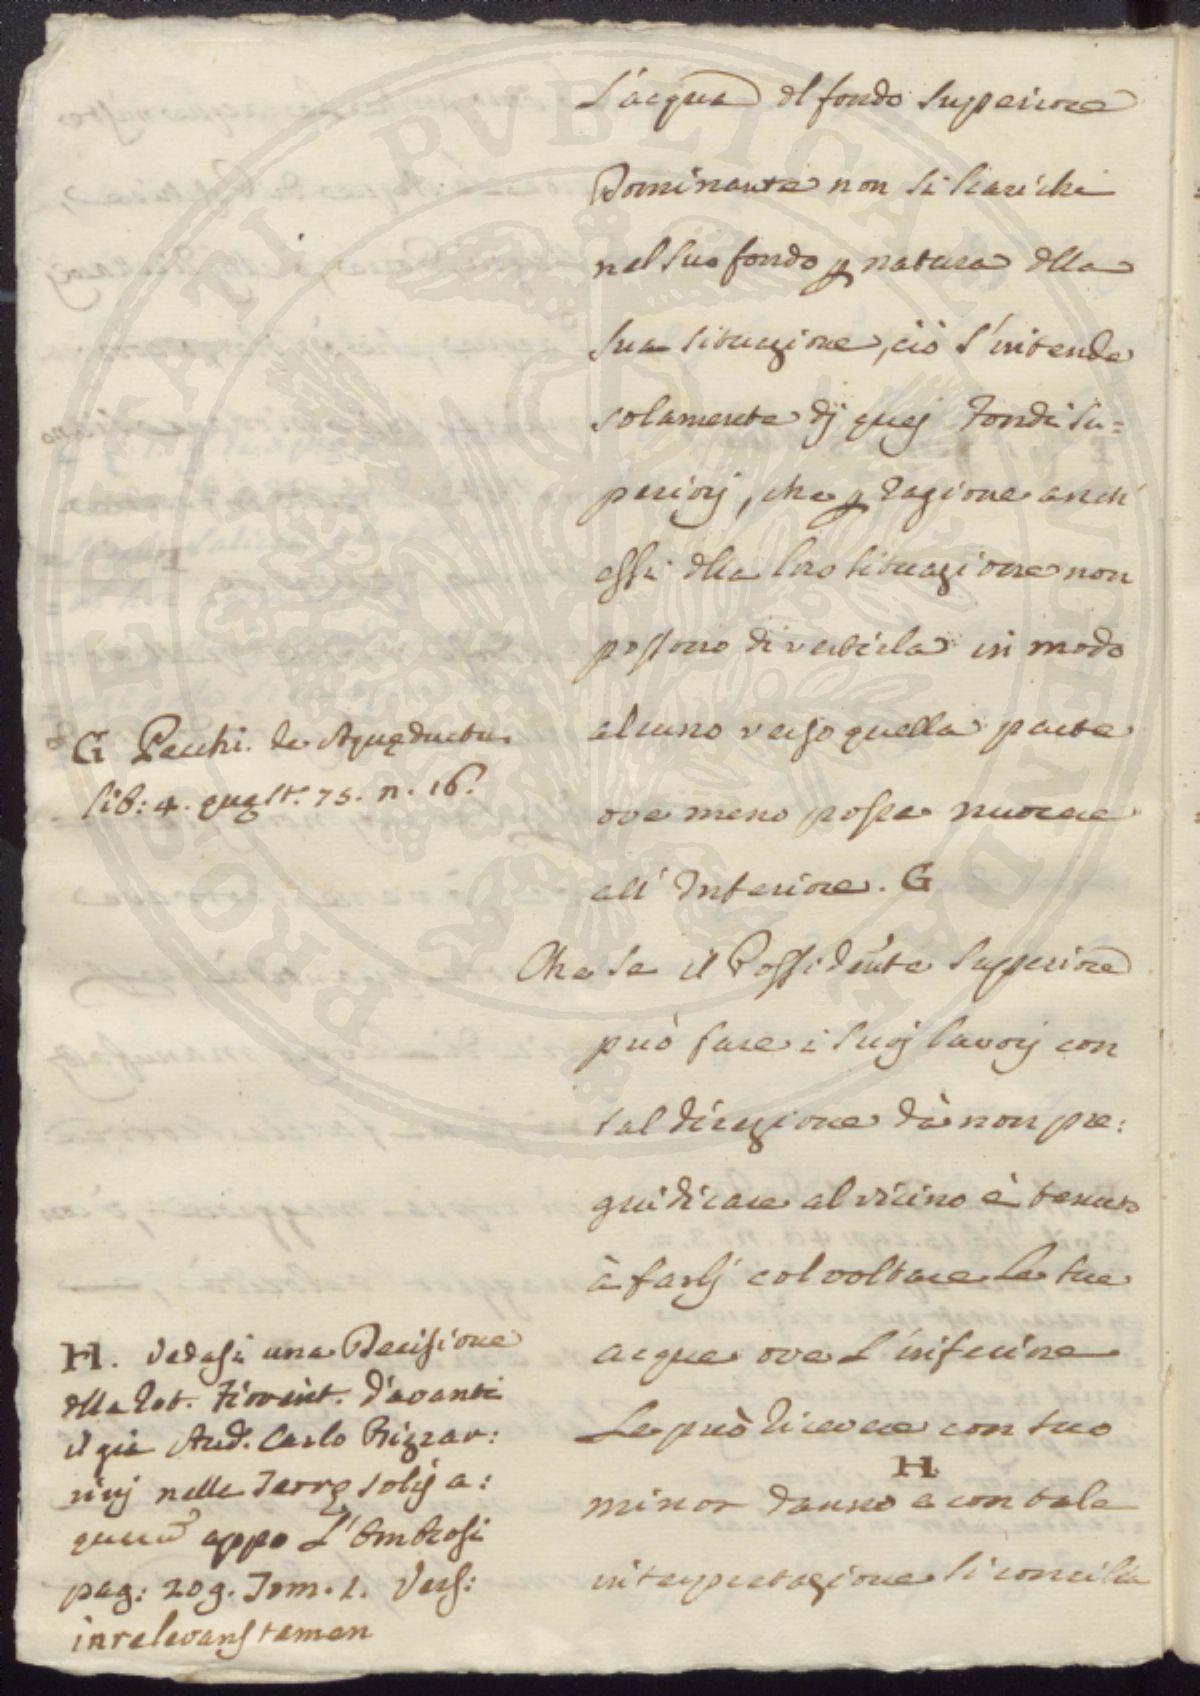 L'acqua dl fondo Superiore
Dominante non si scarichi
nel suo fondo p natura dlla
sua situazione, ciò s'intende
solamente dj quej Fondi Su=
periorj, che p ragione anch'
essi dlla loro situazione non
possono divertirla in modo
alcuno verso quella parte
ove meno possa nuocere
all' Inferiore. G
Che se il Possidente Superiore
può fare i suoj lavorj con
tal direzione dà non pre:
giudicare al vicino è tenuto
à farlj col voltare le sue
acque ove L'inferiore
Le può ricevere con suo
minor danno H e con tale
interpretazione si concilia
G Pecchi. de Aquęductu.
lib: 4. quęst. 75. n. 16.
H. Vedasi una Decisione
dlla Rot. Fiorent. d'avanti
il già Aud. Carlo
nelle Terrę solij a:
appo L'Ambrosi
pag: 209. Tom. 1. Vers:
inrelevans tamen
PROSPERITATI PVBLICAE AVGENDAE